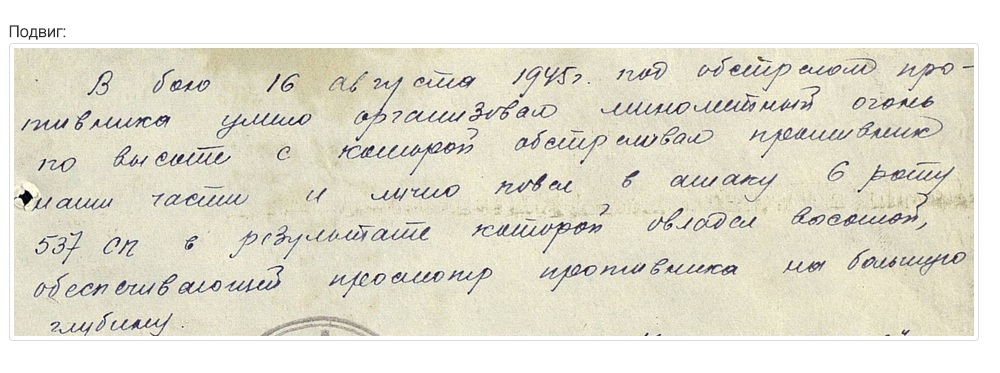 Подвиг:
В бою 16 августа 1945г. под обстрелом про-
тивника умело организовал минометный огонь
по высоте с которой обстреливал противник
наши части и лично повел в атаку 6 роту
537 СП в результате которой овладел высотой,
обеспечивающей просмотр противника на большую
глубину.